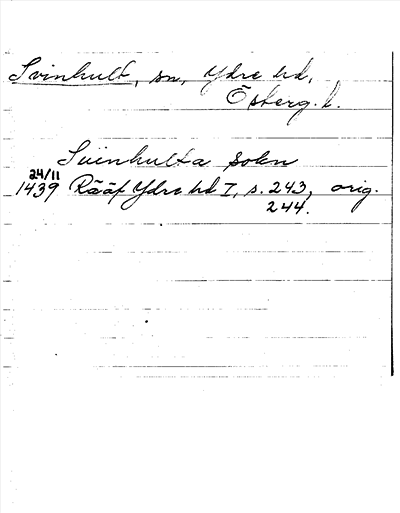 Svinhult, sn, Ydre hd,
Österg. l.
Suinhulta sokn
24/11
1439 Rääf Ydre hd I, s. 243, orig.
244.